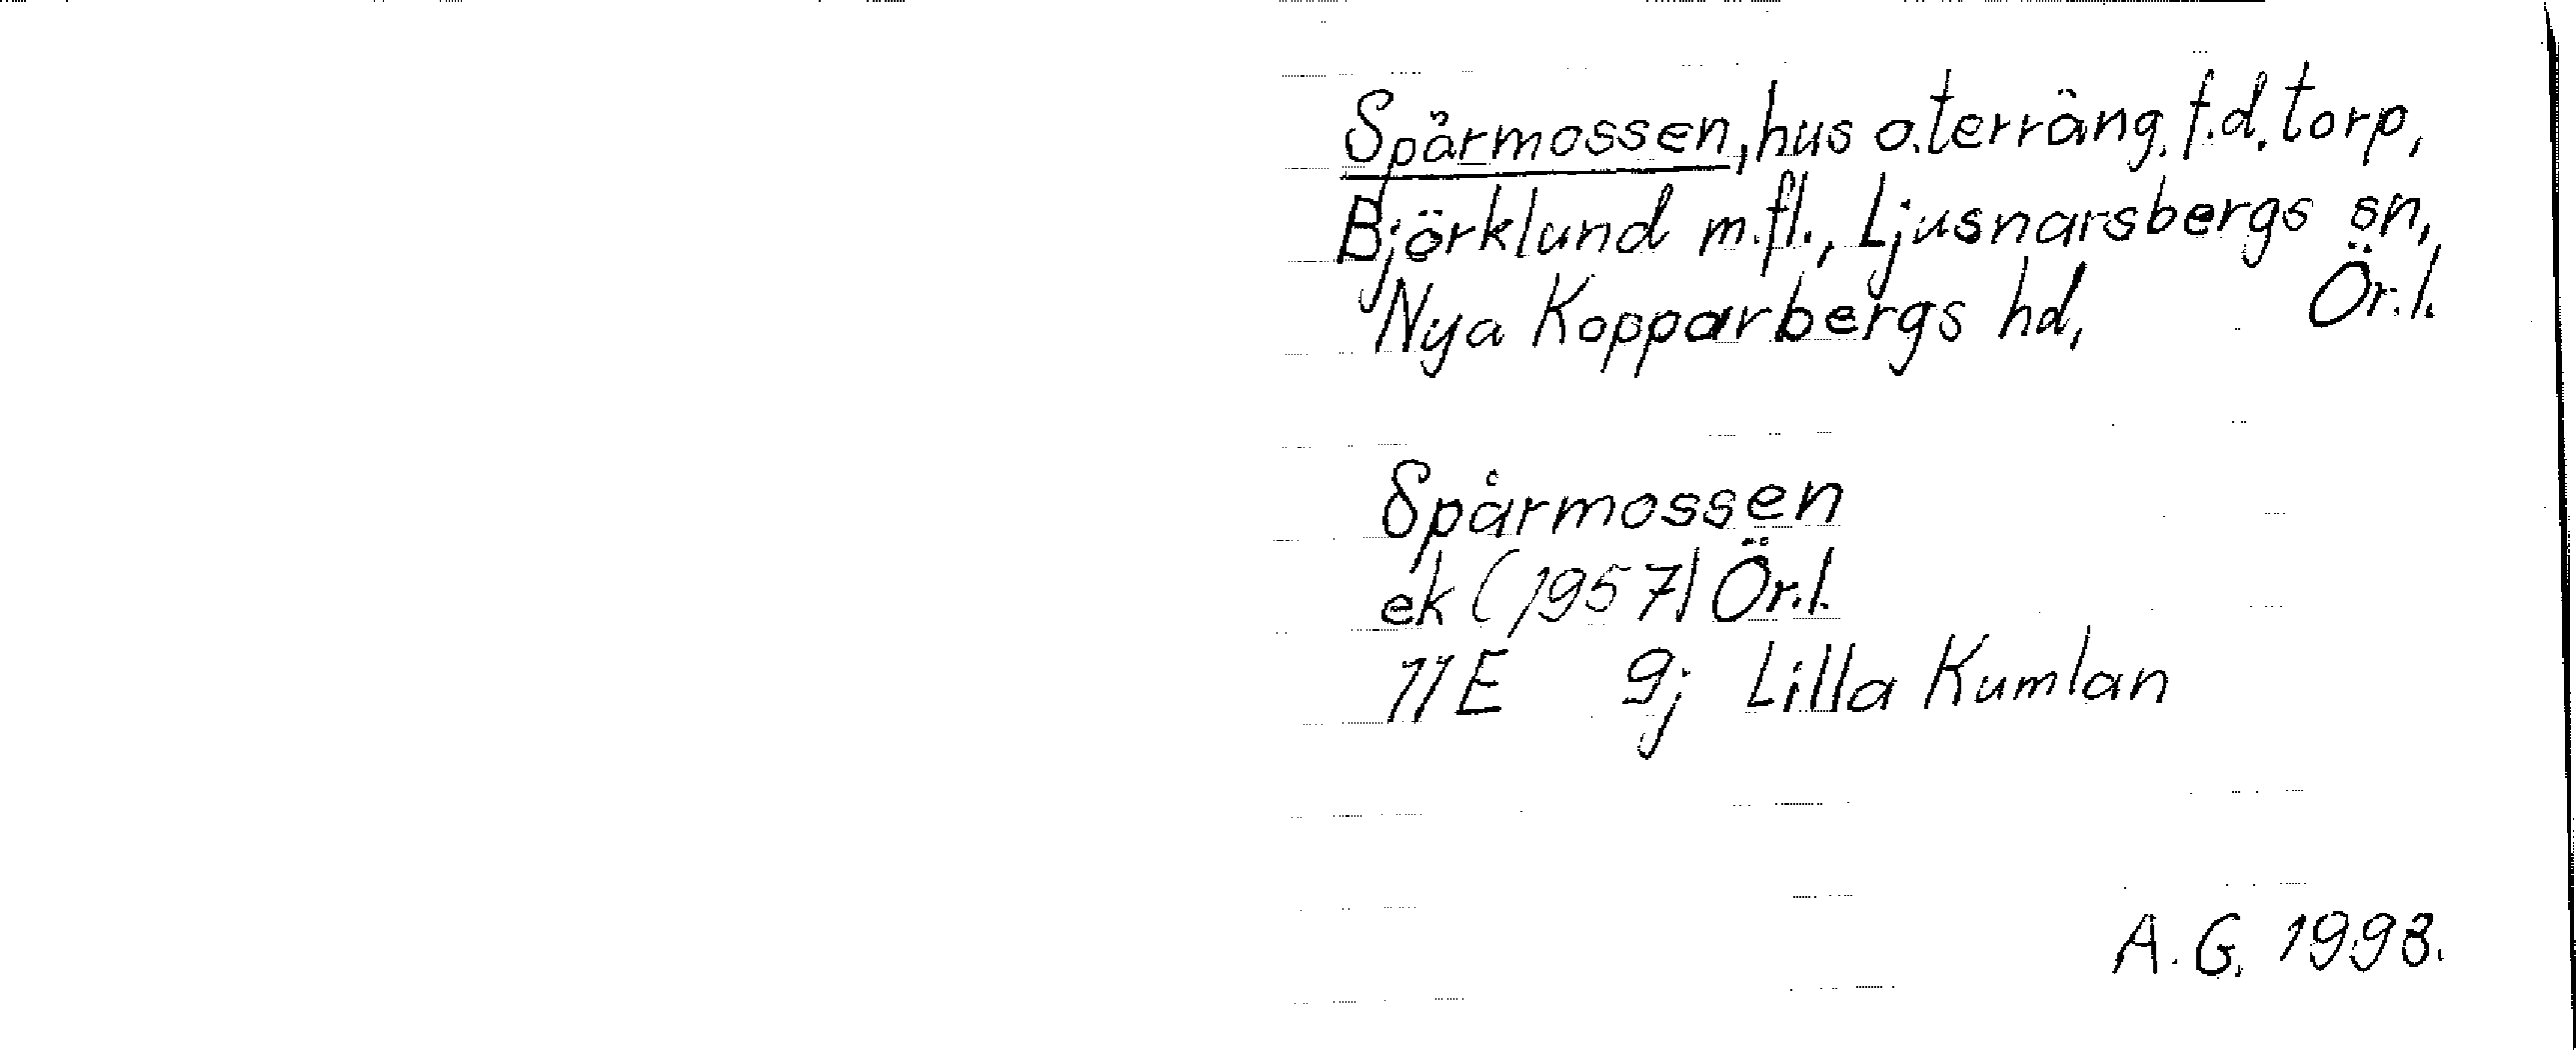 Spårmossen, hus o. terräng, f.d. torp,
Björklund m.fl., Ljusnarsbergs sn,
Nya Kopparbergs hd, Ör.l.
Spårmossen
ek (1957) Ör.l.
11E 9j Lilla Kumlan
A.G. 1993.